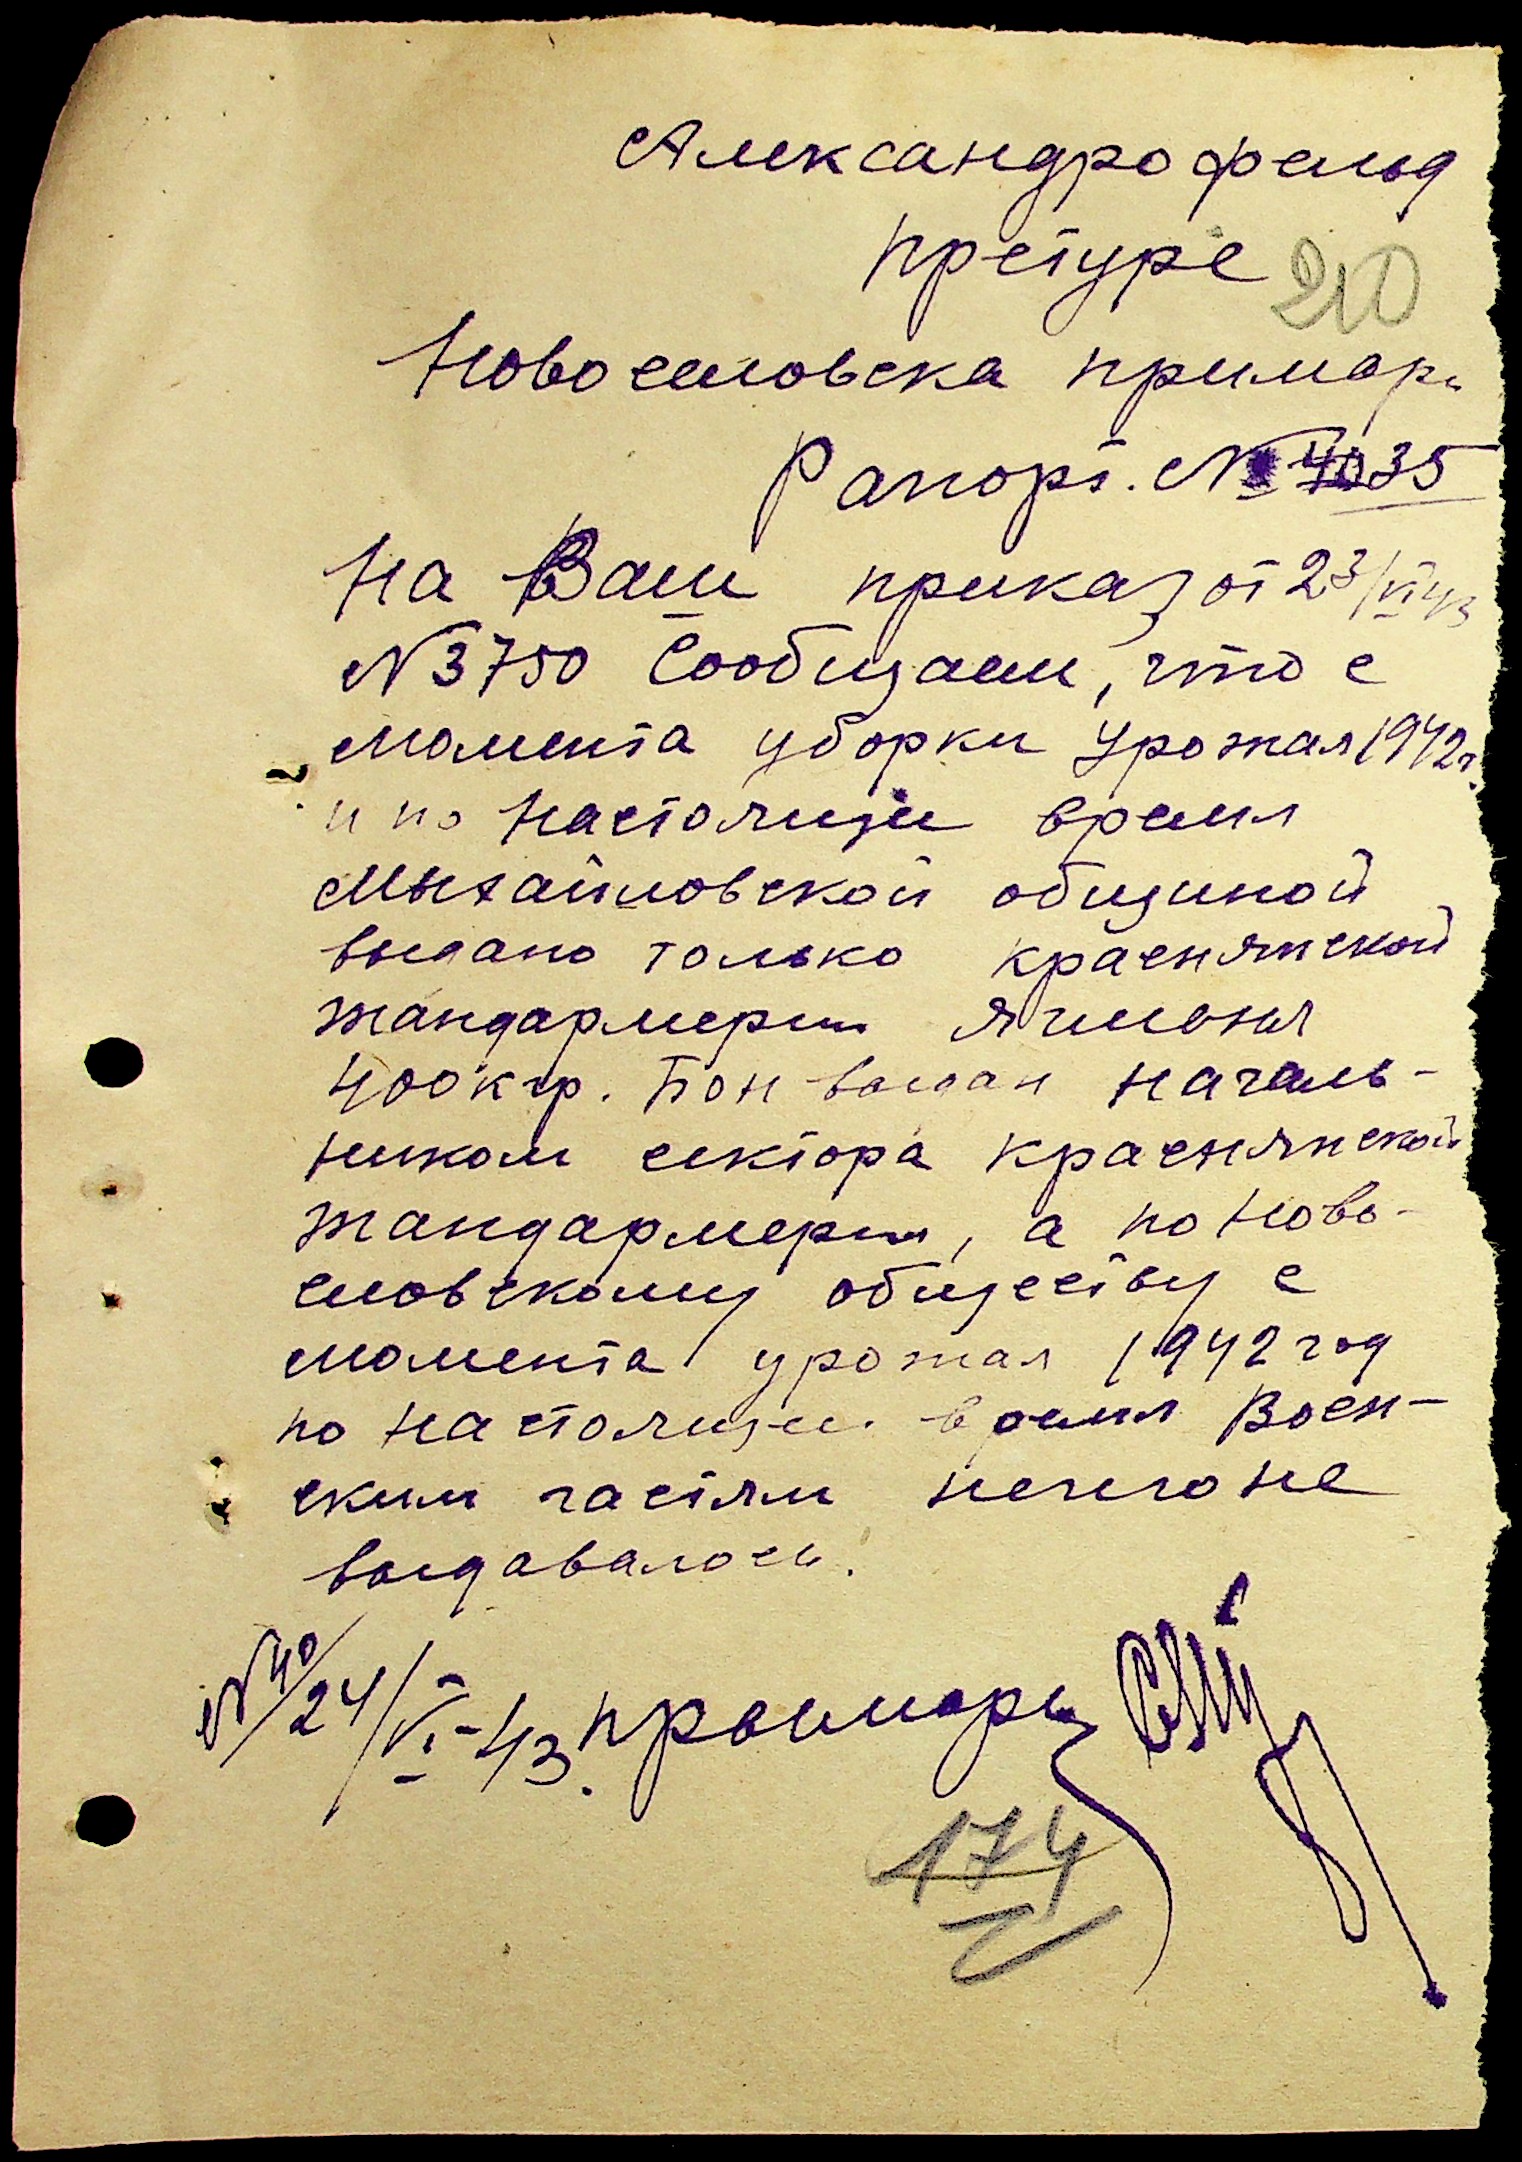 Александрофельд
претуре
210
Новоселовска примари
Рапорт. № 35
На Ваш приказ от 23/VI 43
N 3750 Сообщаем, что с
момента уборки урожая 1942 г.
и по настоящее время
Михайловской общиной
выдано только краснянской
жандармерии ячменя
400 кгр. Бон выдан началь-
ником сектора краснянской
жандармерии, а по Ново-
словскому обществу с
момента урожая 1942 год
по настоящее время Воен-
ским частям нечего не
выдавалось.
N 40/24/VI-43. примарь
174